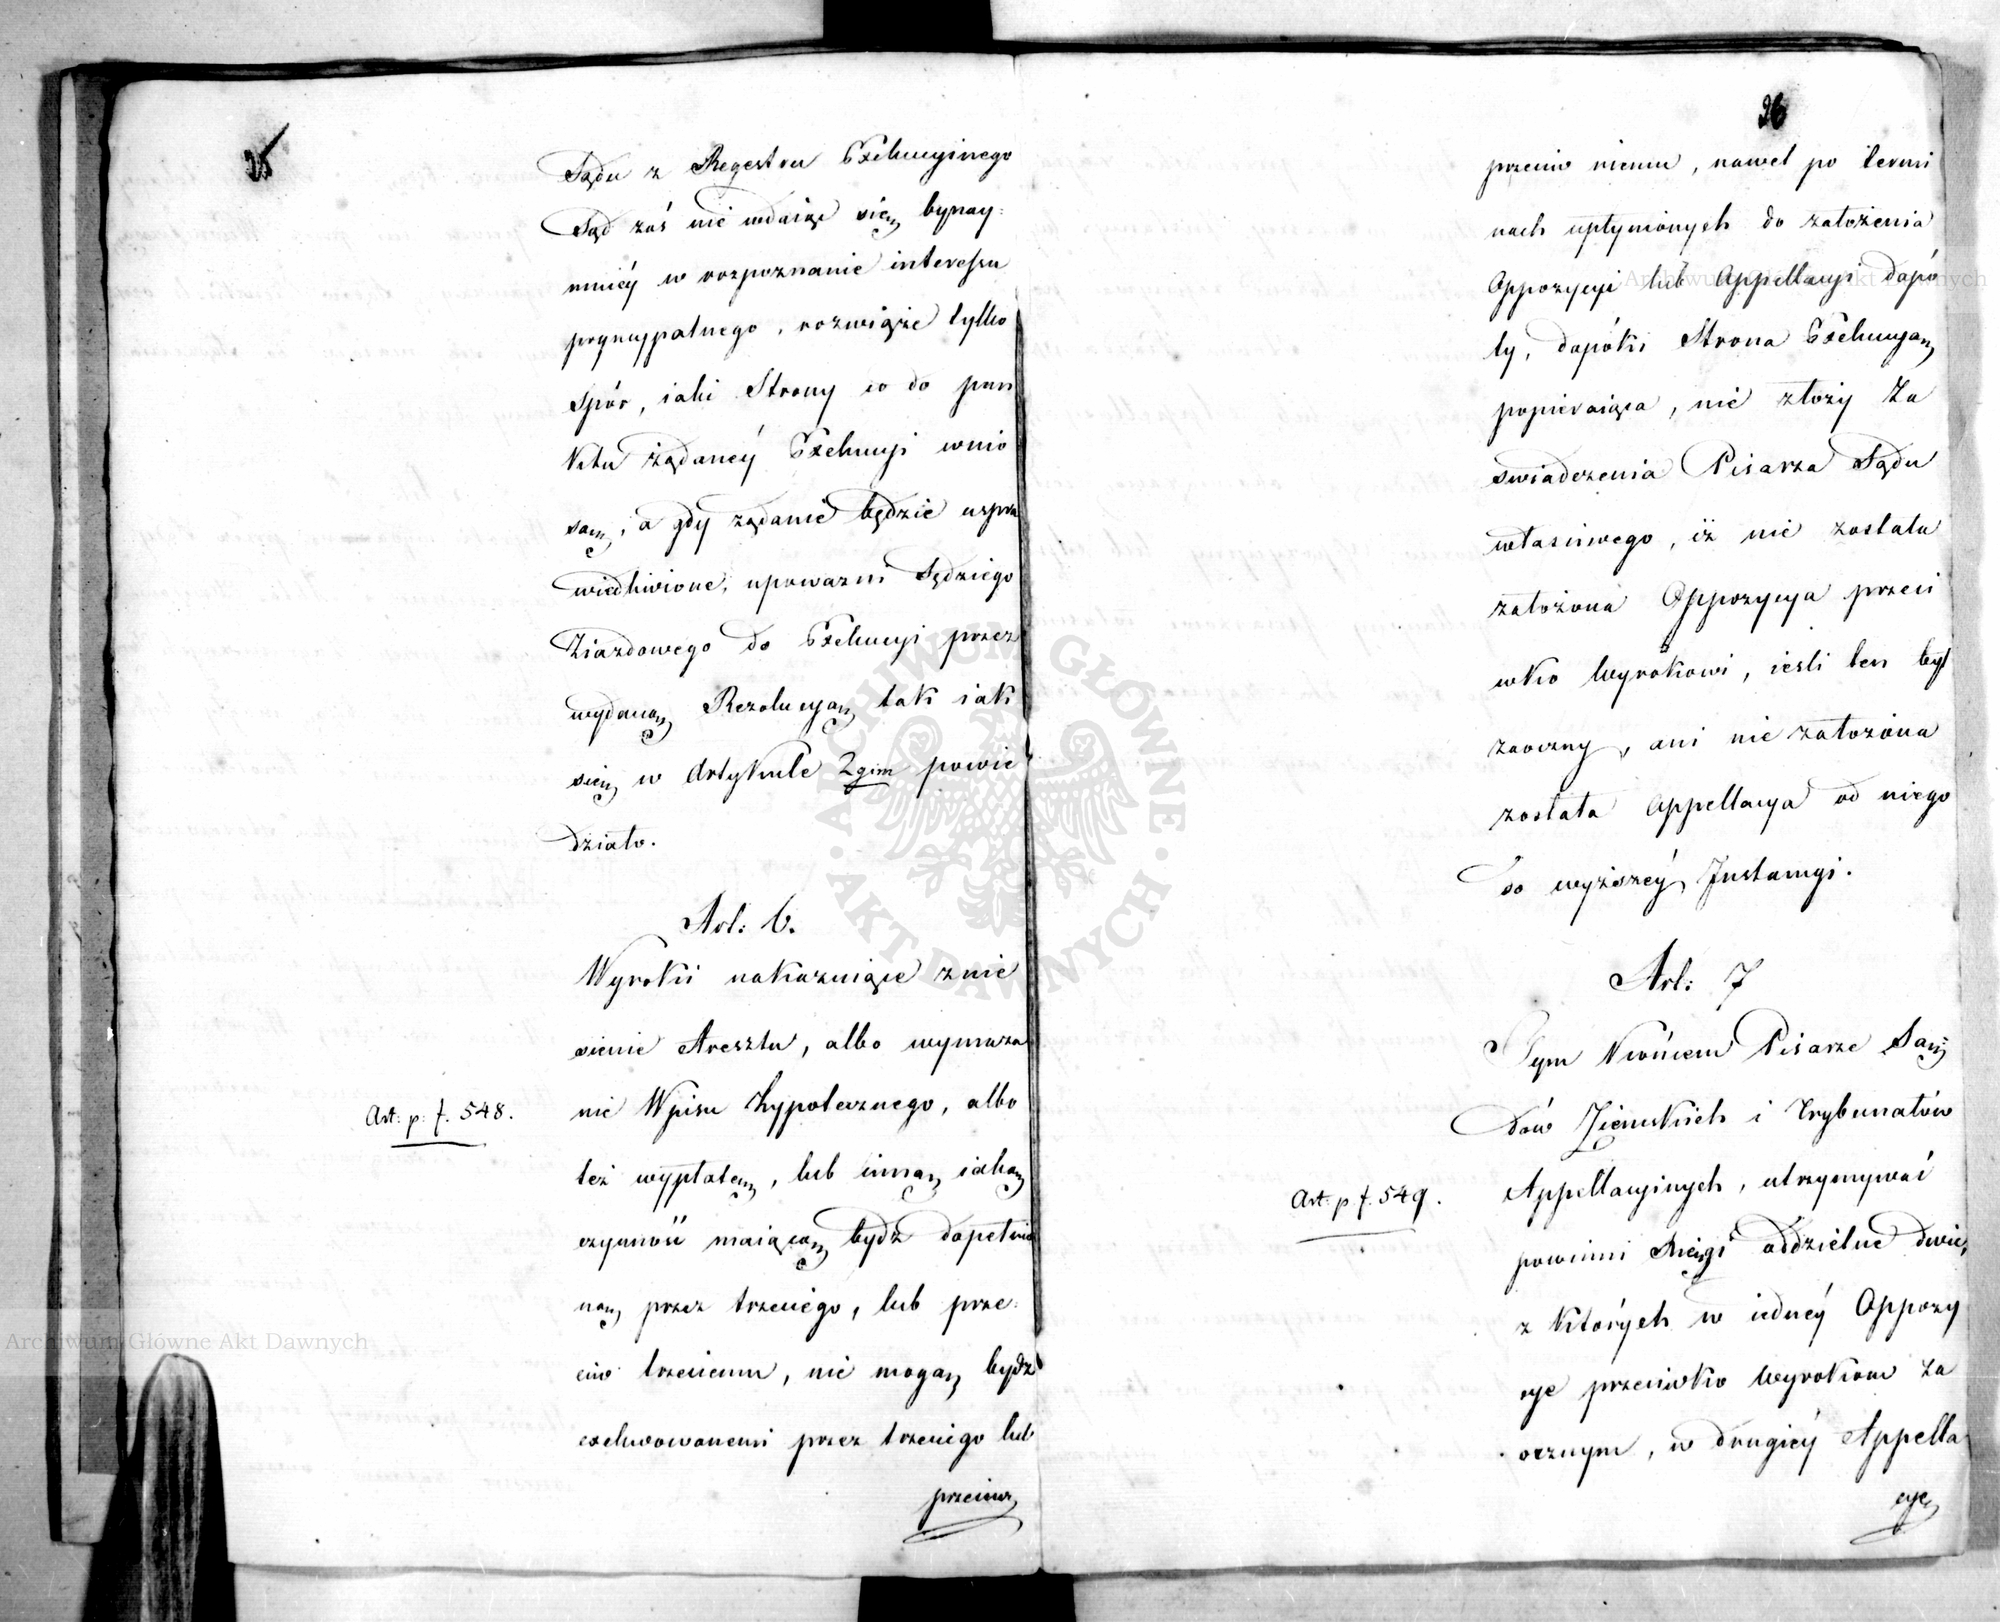 25
Sądu z Regestru Exekucyinego
Sąd zaś nie wdaiąc się bynay:
mnićy w rozpoznanie interessu
pryncypalnego, rozwiąże tylko
spór, iaki Strony co do pun
ktu żądanéy Exekucyi wnio
są, a gdy żądanie będzie uspra
wiedliwione, upoważni Sędziego
Ziazdowego do Exekucyi przez
wydaną Rezolucyą tak iak
się w Artykule 2gim powie
działo.
Art: 6.
Wyroki nakazuiące znie
sienie Aresztu, albo wymaza
nie Wpisu hypotecznego, albo
Art: p: f. 548.
też wypłatę, lub inną iaką
czynność maiącą bydź dopełnio
ną przez trzeciego, lub prze:
ciw trzeciemu, nie mogą bydź
exekwowanemi przez trzeciego lub
przeciw
26
przeciw niemu, nawet po termi
nach upłynionych do założenia
Oppozycyi lub Appellacyi dopó
ty, dopóki Strona Exekucyą
popieraiąca, nie złoży Za
świadczenia Pisarza Sądu
właściwego, iż nie została
założona Oppozycya przeci
wko Wyrokowi, ieśli ten był
zaoczny, ani nie założona
została Appellacya od niego
do wyższéy Instancyi.
Art: 7
Tym końcem Pisarze Są:
dów Ziemskich i Trybunałów
Appellacyinych, utrzymywać
Art: p f. 549.
powinni Xięgi oddzielne dwie,
z których w iednéy Oppozy
cye przeciwko Wyrokom za
ocznym, w drugiéy Appella
cye
ARCHIWUM GŁÓWNE · AKT DAWNYCH ·
Archiwum Główne Akt Dawnych
Archiwum Główne Akt Dawnych